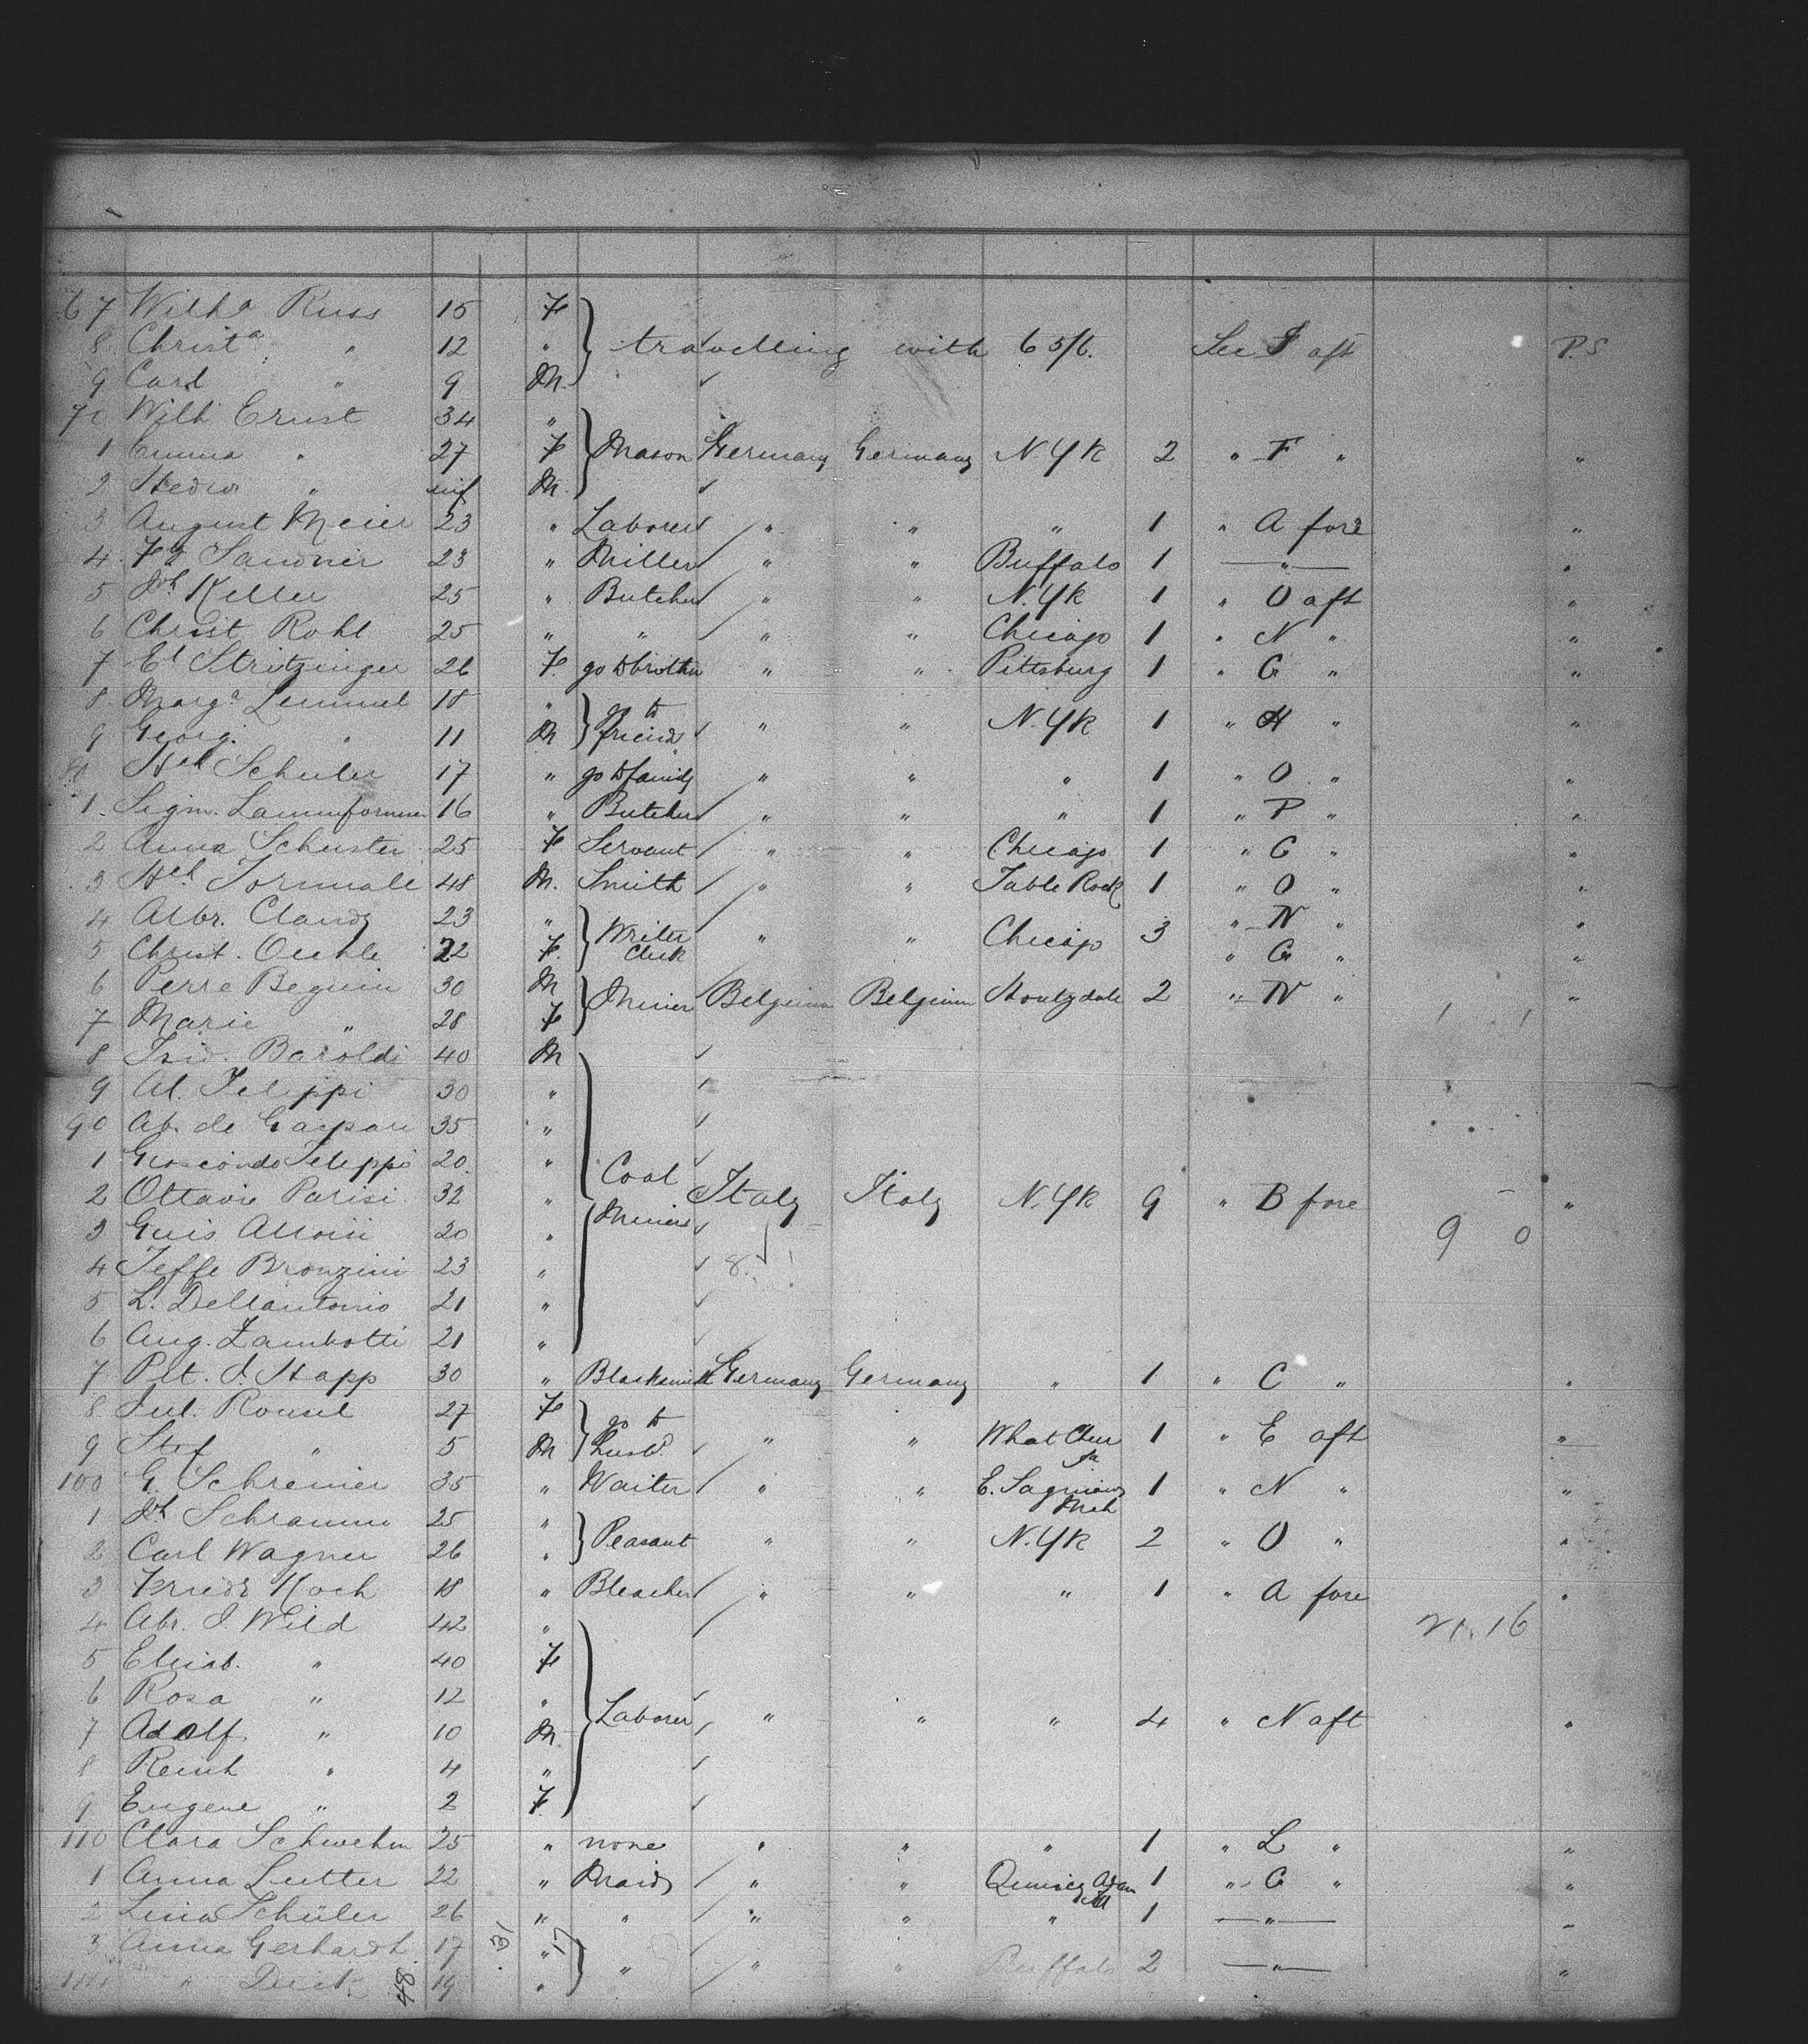 67 Wilhª Russ 15 F
8 Christª " 12 " travelling with 65/6. See F aft P.S
9 Carl " 9 M.
70 Wilh Ernst 34 "
1 Emma " 27 F Mason Germany Germany N.Yk 2 " F " "
2 Hedw " inf M.
3 August Meier 23 " Laborer " " " 1 " A fore "
4 Fd Sandner 23 " Miller " " Buffalo 1 " "
5 Joh Keller 25 " Butcher " " N.Yk 1 " O aft "
6 Christ Rohl 25 " " " " Chicago 1 " N " "
7 El Stritzinger 26 F. go to brother " " Pittsburg 1 " G " "
8 Margª Lemmel 18 "
9 Georg. " 11 M go to friends " " N.Yk 1 " H " "
80 Hch Schuler 17 " go to family " " " 1 " O " "
1. Sigm. 16 " Butcher " " " 1 " P " "
2 Anna Schuster 25 F Servant " " Chicago 1 " G " "
3 Hch 48 M. Smith " " Table Rock 1 " O " "
4 Albr. Claudy 23 " Writer " " Chicago 3 " N " "
5 Christ. Oechle 22 F. Clerk " G " "
6 Perre Beguin 30 M Miner Belgium Belgium Houtzdale 2 " N " "
7 Marie " 28 F
8 Isid. Baroldi 40 M
9 Al. Felippi 30 "
90 Ab. de Gaspari 35 "
1 Giocondo Felippi 20 "
2 Ottavie Parisi 32 " Coal Miners Italy Italy N.Yk 9 " B fore "
3 Guis Alloisi 20 " 9 0
4 Teffe Bronzini 23 " 8.
5 L. Dellantonio 21 "
6 Aug. Zambotti 21 "
7 Pet. J. Stapp 30 " Blacksmith Germany Germany " 1 " C " "
8 Jul. 27 F
9 Stef " 5 M go to husbd " " What Cheer Ia 1 " E aft "
100 G. Schreiner 35 " Waiter " " E. Saginaw Mch 1 " N " "
1 Joh Schramm 25 "
2 Carl Wagner 26 " Peasant " " N.Yk 2 " O " "
3 Friedr Koch 18 " Bleacher " " " 1 " A fore "
4 Abr. J. Wild 42 " 21. 16
5 Elisab. " 40 F
6 Rosa " 12 "
7 Adolf " 10 M Laborer " " " 4 " N aft "
8 Reinh " 4 "
9 Eugene " 2 F
110 Clara Schwehm 25 " none " " " 1 " L " "
1 Anna Lutter 22 " Maid " " Quincy Ill 1 " G " "
2 Lina Schüler 26 " " " " " 1 " "
3 Anna Gerhardt 17 31 " 17
114 " Dick 48 19 " " " " Buffalo 2 " "